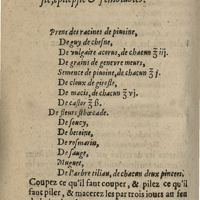 sie, epilepsie & semblables.
Prens des racines de piuoine,
De guy de chesne,
De vulgaire acorus, de chacun ʒ iij.
De grains de geneure meurs,
Semence de piuoine, de chacun ʒ j.
De cloux de girofle,
De macis, de chacun ʒ vj.
De castor ʒ ß.
De fleurs sthœcade.
De soucy,
De betoine,
De rosmarin,
De sauge,
Muguet,
De l'arbre tilian, de chacun deux pincees.
Coupez ce qu'il faut couper, & pilez ce qu'il
faut piler, & macerez les par trois iours au feu